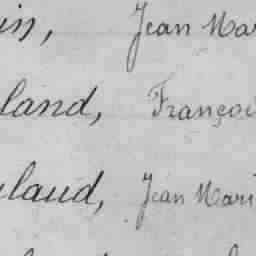 in, Jean Mar
land, Françoi
laud, Jean Mari